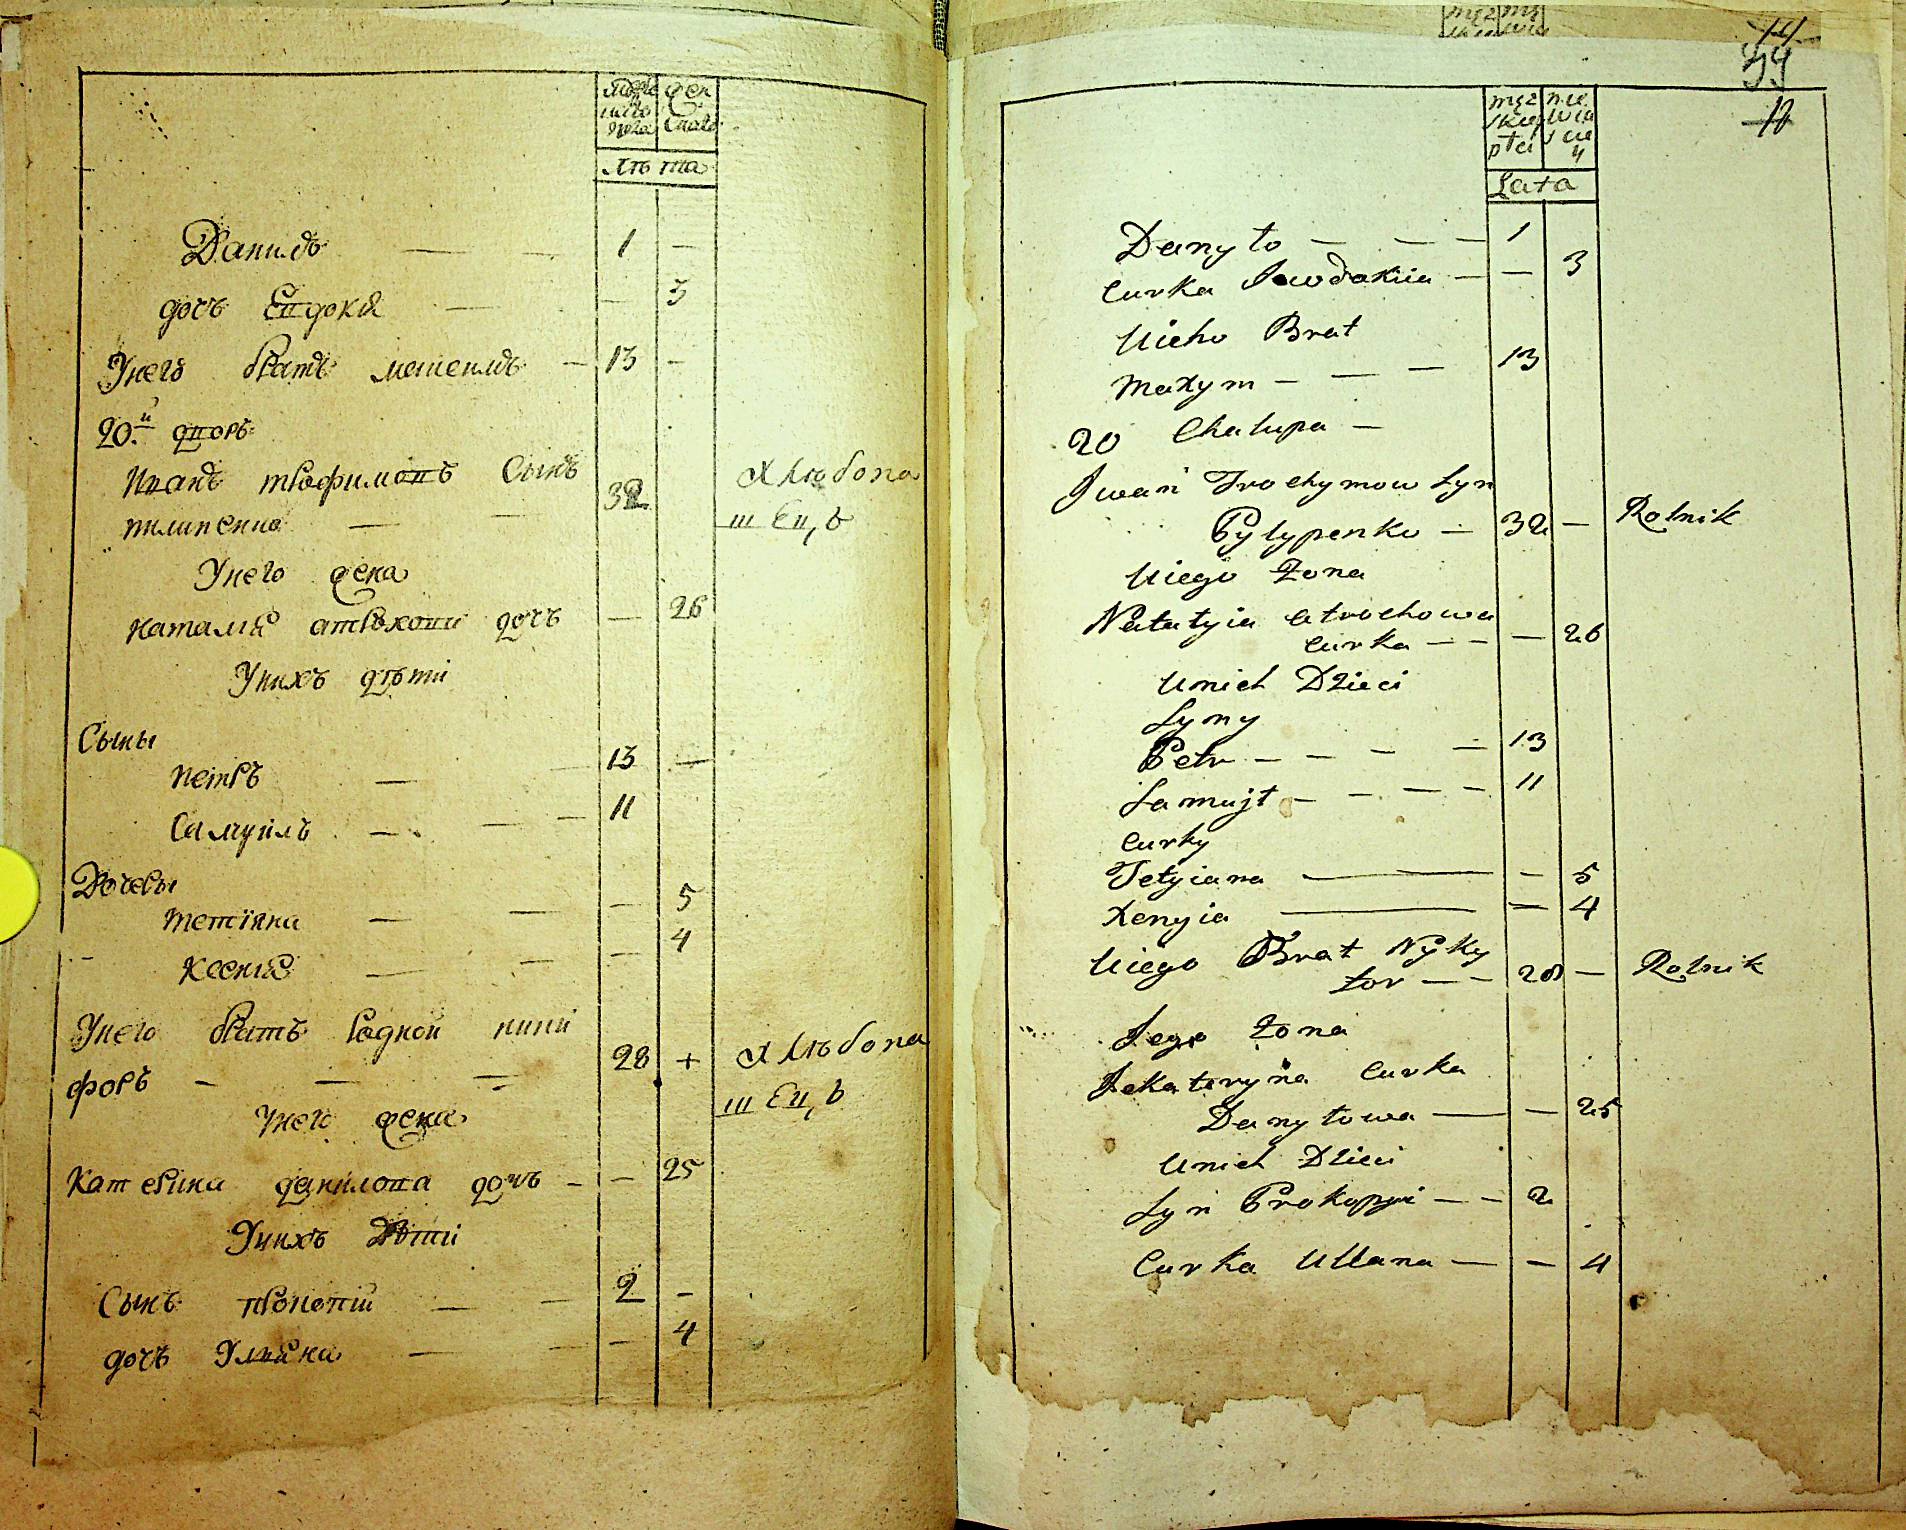 жен
Лѣта
Данило — — 1 —
дочъ Евдокия — — 3
Унего братъ меншій — 13 —
20.й дворъ
Иванъ трофимовъ Сынъ 32
пилипенко — — Хлѣбопа
шец,ъ
Унего жена
наталия дочъ — 26
Унихъ дѣти
Сыны
петръ — — 13 —
Самуилъ — — — 11
Дочеры
тетіяна — — — 5
Ксения — — — 4
Унего братъ родной ники
форъ — — — 28 + Хлѣбопа
шец,ъ
Унего жена
Катерина данилова дочъ — — 25
Унихъ Дѣти
Сынъ прокопій — — 2 —
дочъ Улияна — — 4
39
12
męz
skiey
płci
nie
wia
scie
y
Lata
Danyło — — — 1
Curka Jewdokiia — — 3
Uieho Brat
Maxym — — — 13
20 Chalupa —
Iwan Trochymow Syn
Pylypenko — 32 — Rolnik
Uiego Zona
Natalyia
Curka — — — 26
Unich Dzieci
Syny
Petr — — — — 13
Samujł — — — — 11
Curky
Tetyiana — — 5
Xenyia — — 4
Uiego Brat Nyky
for — — 28 — Rolnik
Jego Zona
Jekateryna Curka
Danyłowa — — 25
Unich Dzieci
Syn Prokopyi — — 2
Curka Ullana — — 4